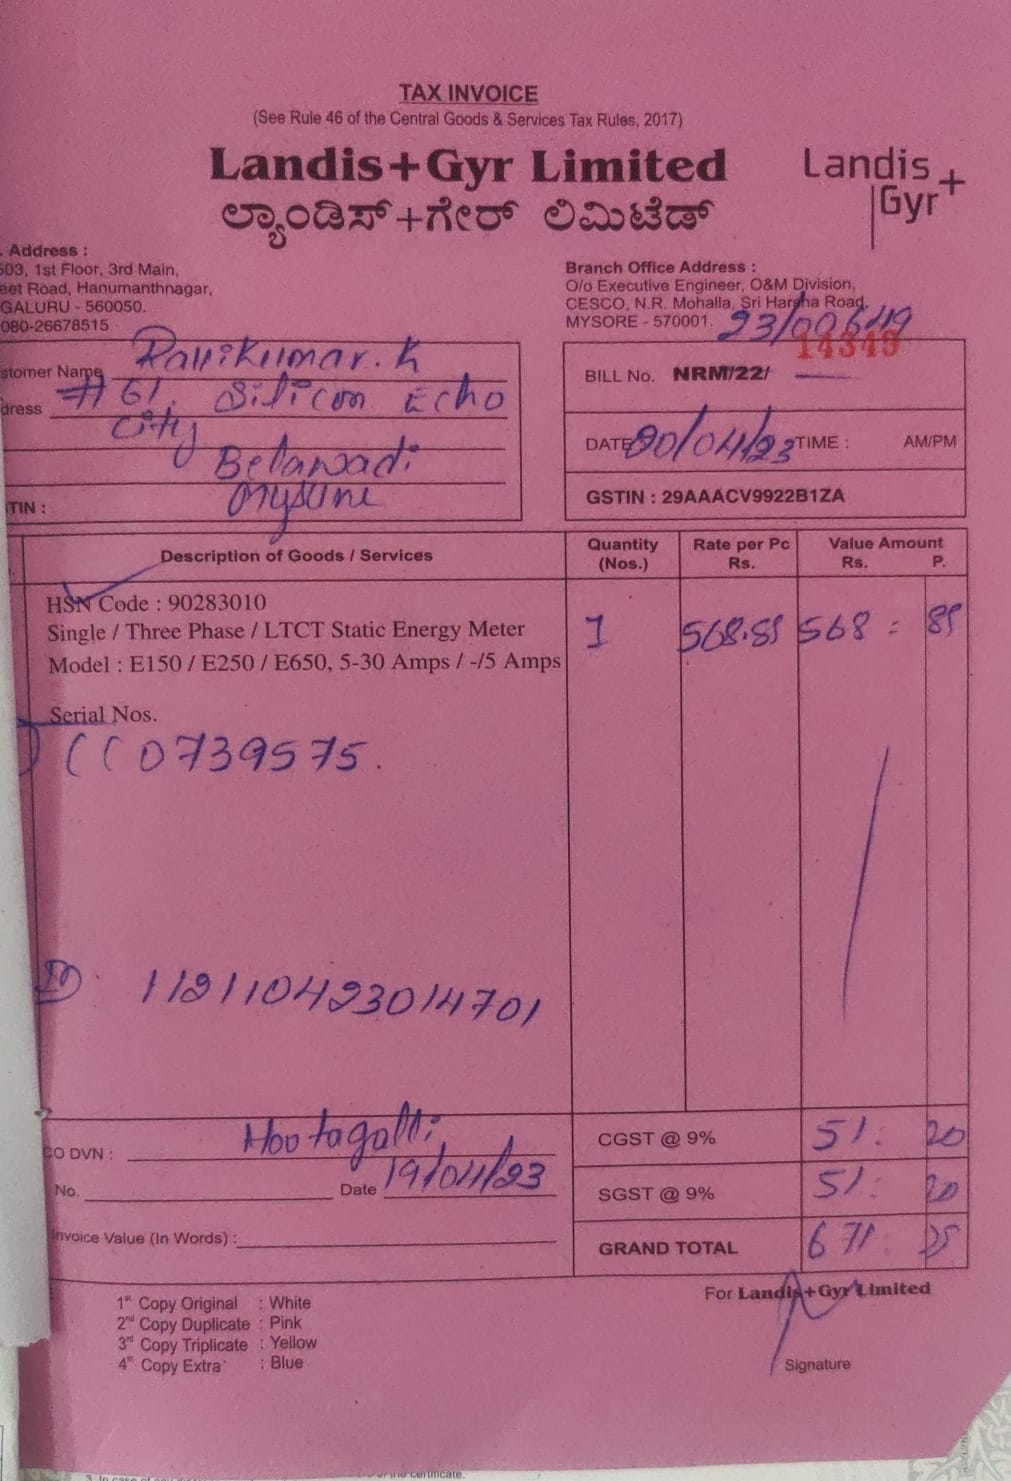 TAX INVOICE
(See Rule 46 of the Central Goods & Services Tax Rules, 2017)
Landis+Gyr Limited
ಲ್ಯಾಂಡಿಸ್+ಗೇರ್ ಲಿಮಿಟೆಡ್
Landis
Gyr+
. Address :
503, 1st Floor, 3rd Main,
eet Road, Hanumanthnagar,
GALURU - 560050.
080-26678515
Branch Office Address :
O/o Executive Engineer, O&M Division,
CESCO, N.R. Mohalla, Sri Harsha Road,
MYSORE - 570001.
23/00649
stomer Name Ravikumar. K
dress #61, Silicon Echo
City
Belawadi
Mysore
TIN :
14349
BILL No. NRM/22/
DATE 20/04/23 TIME : AM/PM
GSTIN : 29AAACV9922B1ZA
Description of Goods / Services
Quantity (Nos.)
Rate per Pc Rs.
Value Amount
Rs. P.
HSN Code : 90283010
Single / Three Phase / LTCT Static Energy Meter
Model : E150 / E250 / E650, 5-30 Amps / -/5 Amps
1 568.85 568 = 85
Serial Nos.
CC0739575.
112110423014701
O DVN : Hootagalli
No. Date 19/04/23
nvoice Value (In Words) :
CGST @ 9% 51. 20
SGST @ 9% 51. 20
GRAND TOTAL 671. 25
For Landis+Gyr Limited
Signature
1st Copy Original : White
2nd Copy Duplicate : Pink
3rd Copy Triplicate : Yellow
4th Copy Extra : Blue